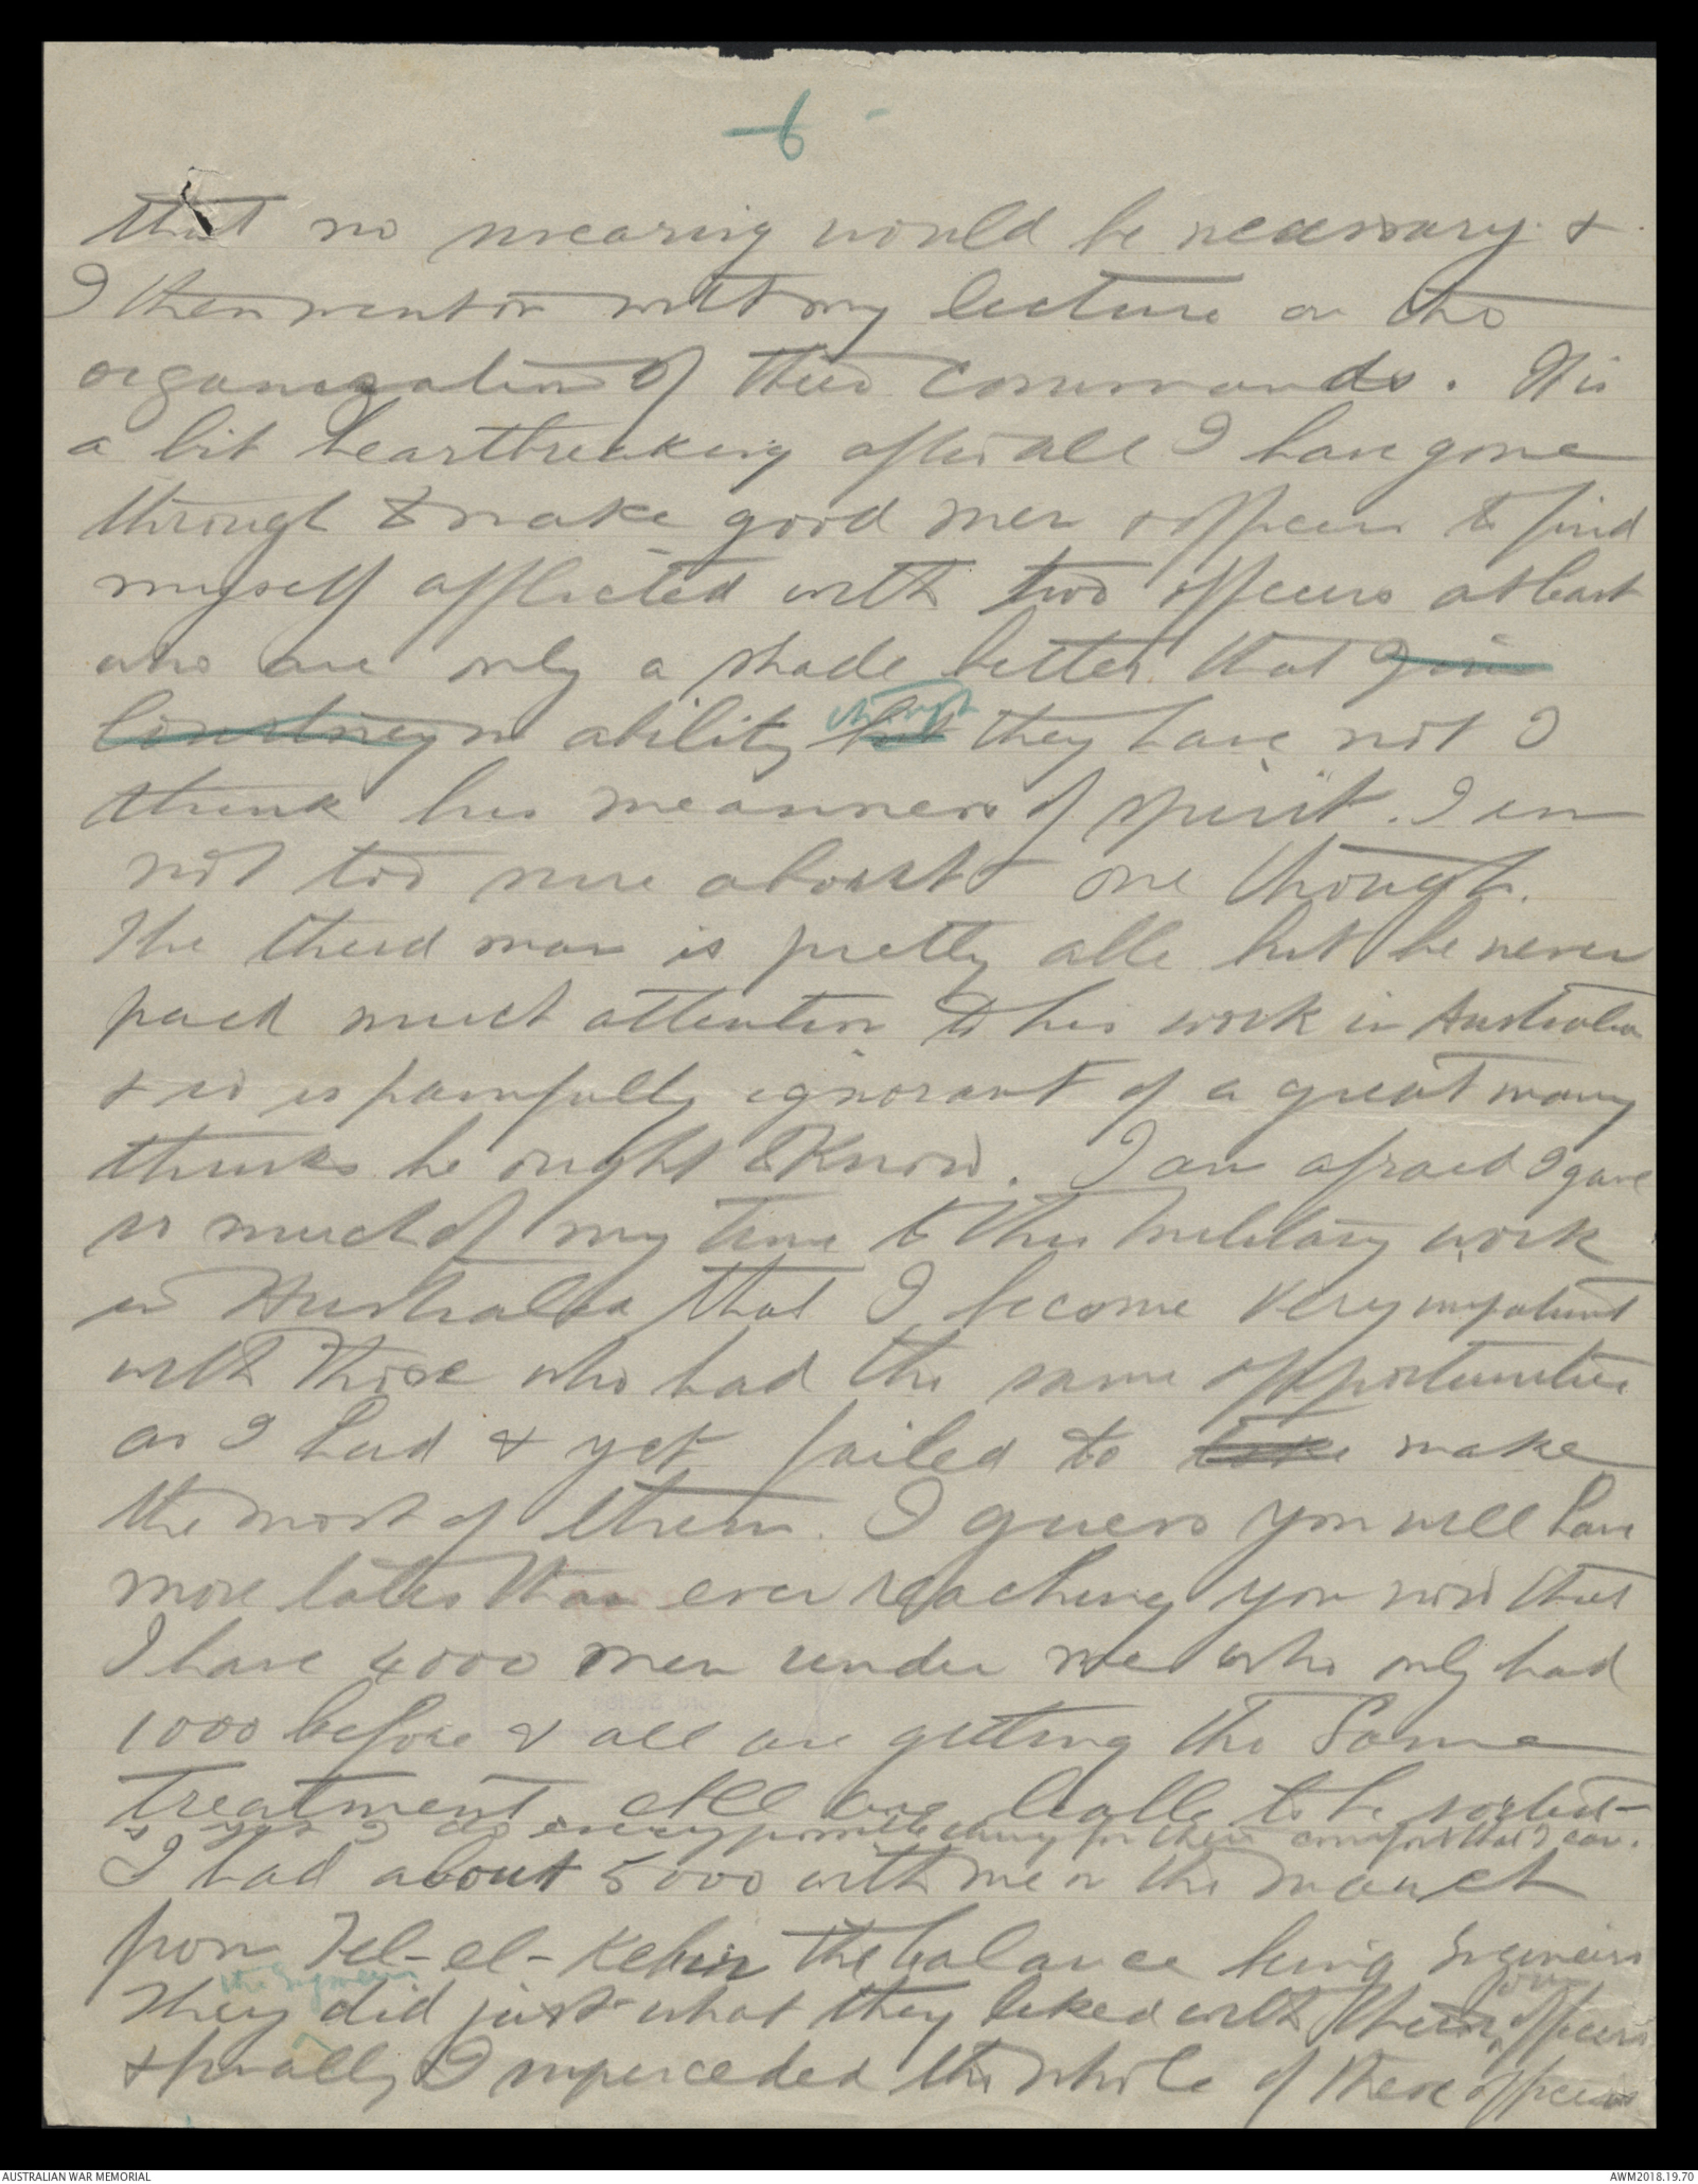 - 6 -
that no swearing would be necessary &
I then went on with my lecture on the
organization of their commands. It is
a bit heartbreaking after all I have gone
through to make good men & officers to find
myself afflicted with two officers at least
who are only a shade better that
Courtney in ability but though they have not I
think his meanness of spirit. I am
not too sure about one though.
The third man is pretty able but he never
paid much attention to his work in Australia
& so is painfully ignorant of a great many
things he ought to know. I am afraid I gave
so much of my time to this military work
in Australia that I become very impatient
with those who had the same opportunities
as I had & yet failed to take make
the most of them. I guess you will have
more tales than ever reaching you now that
I have 4000 men under me who only had
1000 before & all are getting the same
treatment. All are liable to be
& yet I do every possible thing for their comfort that I can.
I had about 5000 with me on the march
from Tel-el-Kebir the balance being Engineers
the Engineers
They did just what they liked with their own officers
& finally I superceded the whole of these officers
AUSTRALIAN WAR MEMORIAL
AWM2018.19.70